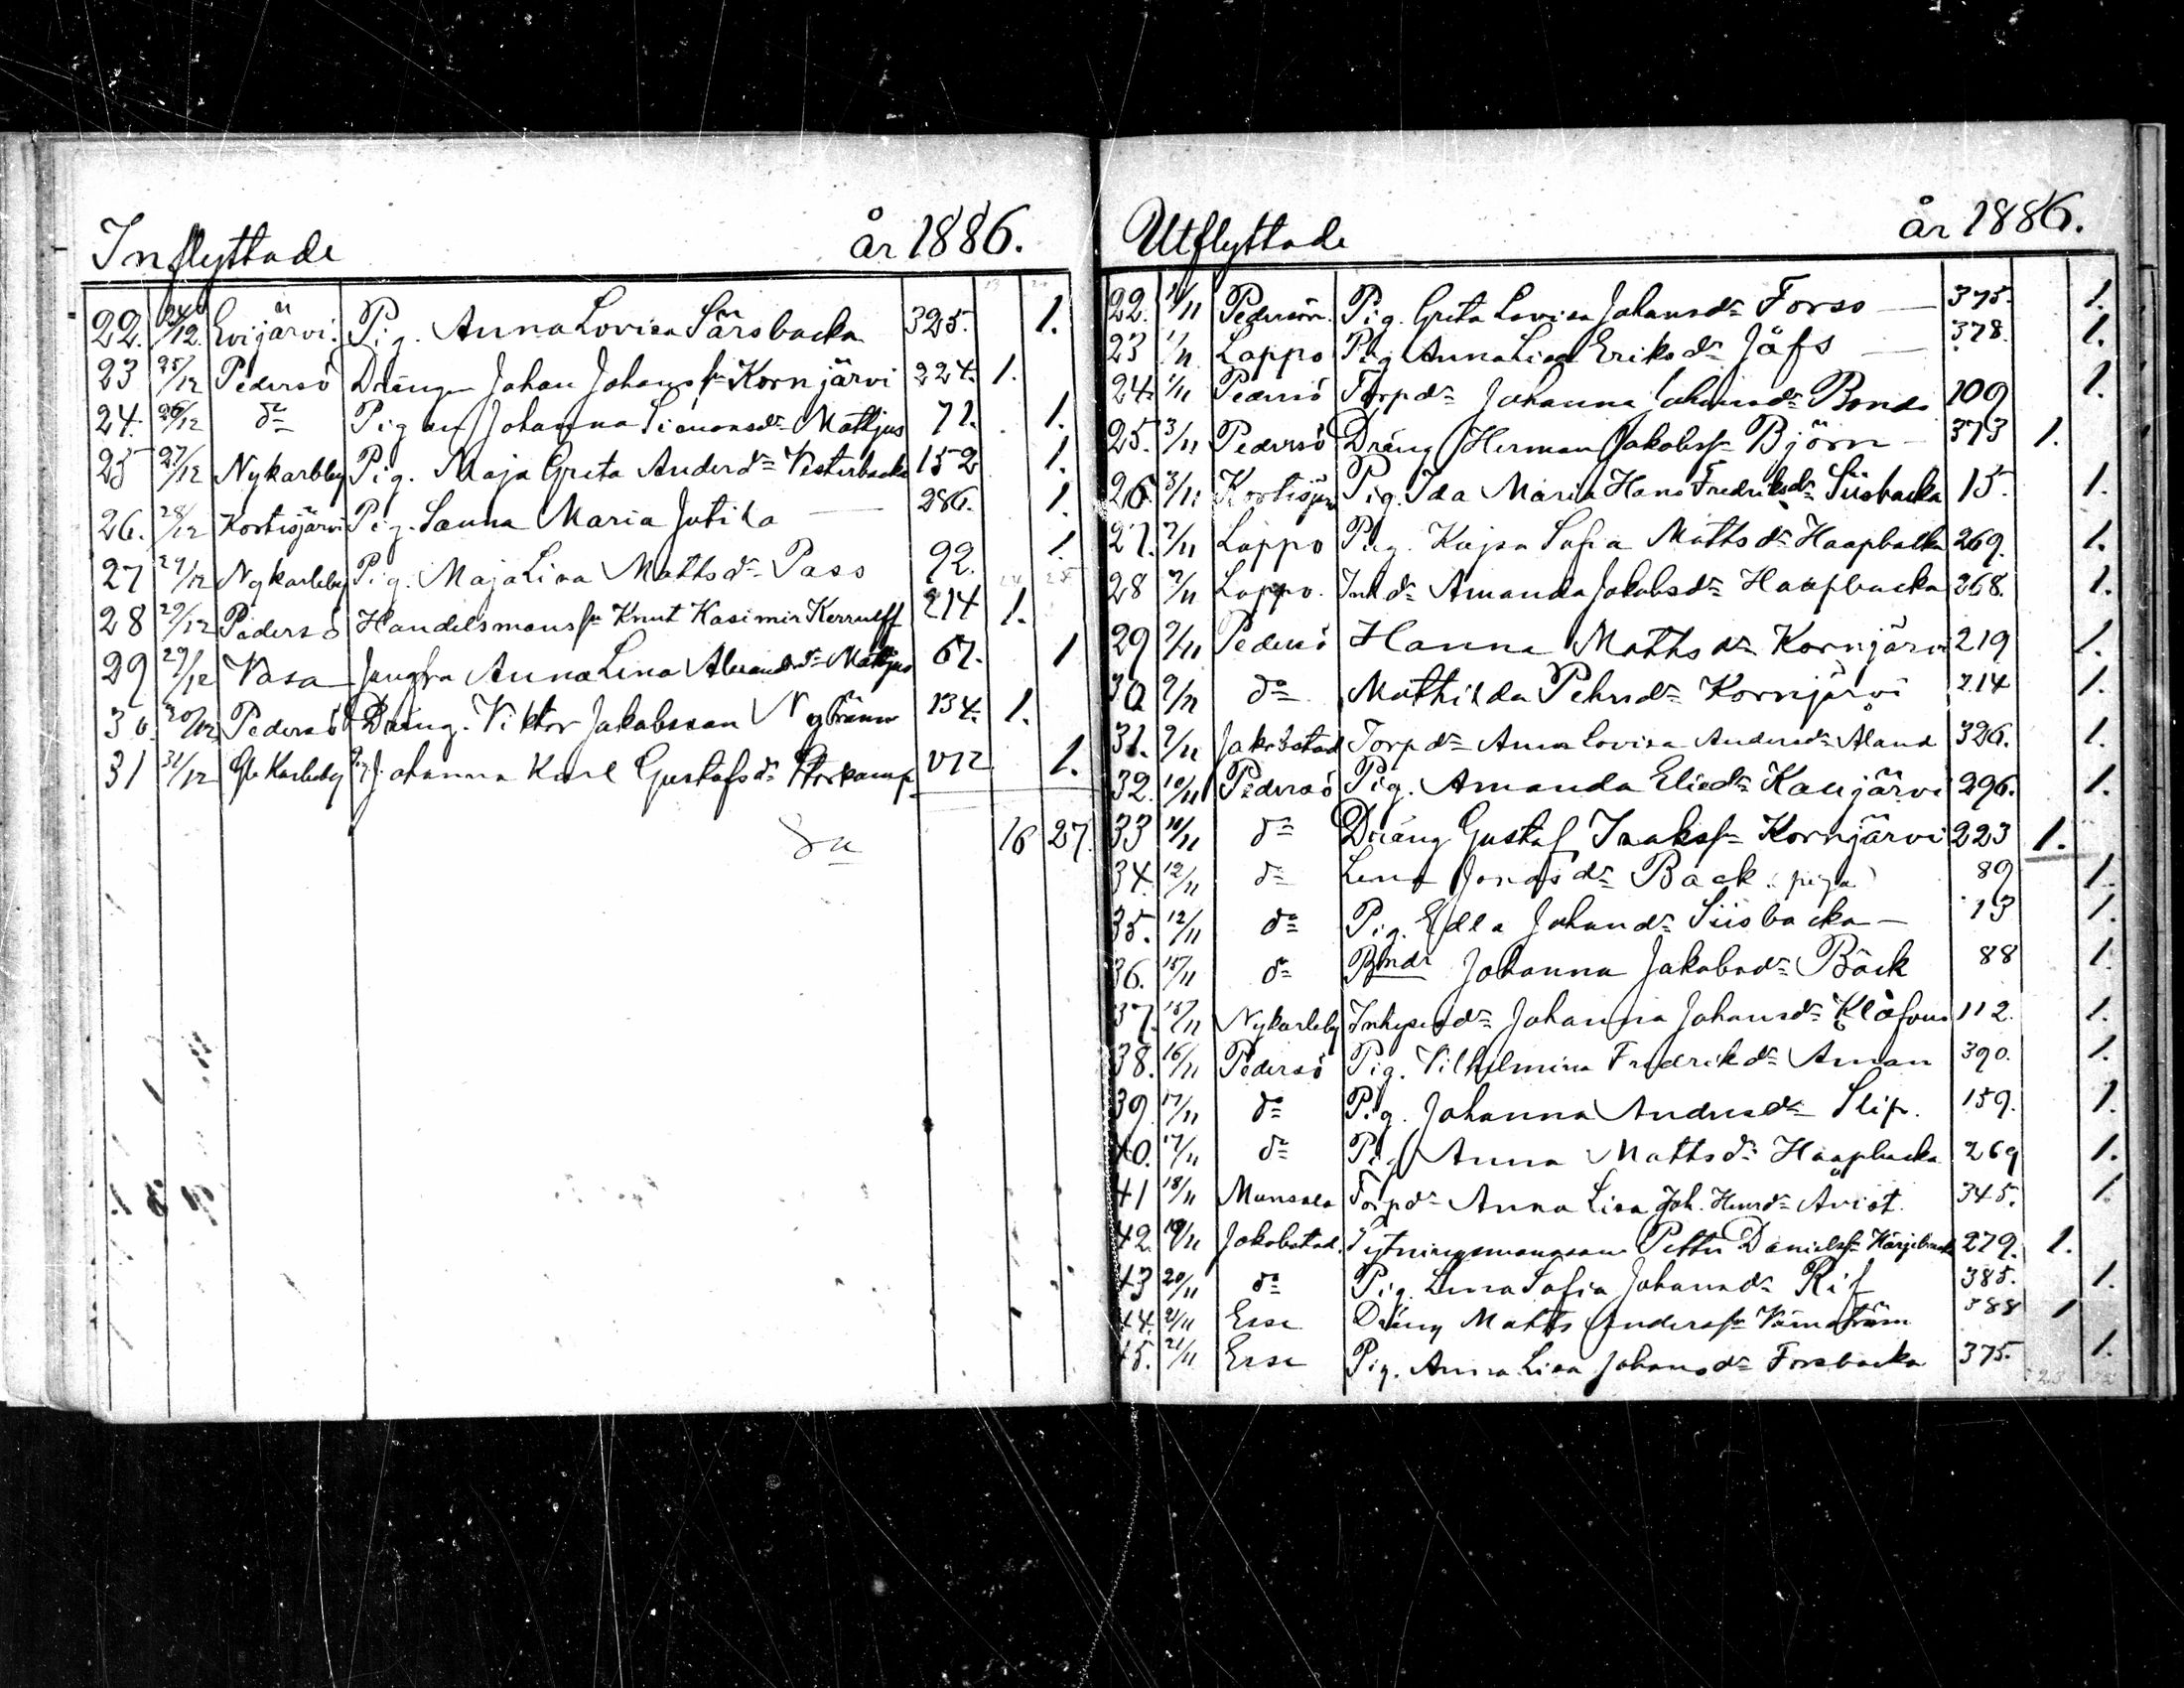 Inflyttade år 1886.
22. 24/12. Evijärvi. Pig. Anna Lovisa Särsbacka 325. 1.
23 25/12 Pedersö Dräng Johan Johans sn Kornjärvi 224. 1.
24. 26/12 do Pigan Johanna Simonsdr Mattjus 71. 1.
25 27/12 Nykarbby Pig. Maja Greta Andersdr Vesterbacka 152 1.
26. 28/12 Kortisjärvi Pig. Sanna Maria Jutila 286. 1.
27 29/12 Nykarleby Pig. Maja Lisa Mattsdr Pass 92. 1.
28 29/12 Pedersö Handelsmans sn Knut Kasimir Kerrulff 214 1.
29 29/12 Vasa Jungfru Anna Lena Mattjus 67. 1
30. 30/12 Pedersö Dräng. Viktor Jakobsson Nybränn 134. 1.
31 31/12 Gl. Karleby Johanna Karl Gustafsdr Storkamp 1.
Sa 16 27.
Utflyttade år 1886.
22. 1/11 Pedersöre. Pig. Greta Lovisa Johansdr Forss 375. 1.
23 1/11 Lappo Pig Anna Lisa Eriksdr Jäfs 378. 1.
24. 1/11 Pedersö Torpdr Johanna Johansdr Bonds 109 1.
25. 3/11 Pedersö Dräng Herman Jakobssn Björn 373 1.
26. 3/11 Kortisjärvi Pig. Ida Maria Hans Fredriksdr Siisbacka 15. 1.
27. 7/11 Lappo Pig. Kajsa Sofia Mattsdr Haapbacka 269. 1.
28 7/11 Lappo. Inhdr Amanda Jakobsdr Haapbacka 268. 1.
29 7/11 Pedersö Hanna Mattsdr Kornjärvi 219 1.
30 9/11 do Mathilda Pehrsdr Kornjärvi 214 1.
31. 9/11 Jakobstad Torpdr Anna Lovisa Andersdr Åland 326. 1.
32. 10/11 Pedersö Pig. Amanda Eliedr Kaujärvi 296. 1.
33 10/11 do Dräng Gustaf Isakssn Kornjärvi 223 1.
34. 12/11 do Lena Jonasdr Back (piga) 89 1.
35. 12/11 do Pig. Edla Johansdr Siisbacka 13 1.
36. 15/11 do Bndr Johanna Jakobsdr Bäck 88 1.
37. 15/11 Nykarleby Inhysesdr Johanna Johansdr Klåfvus 112. 1.
38. 16/11 Pedersö Pig. Vilhelmina Fredrikdr Åman 390. 1.
39 17/11 do Pig. Johanna Andersdr Slip. 159. 1.
40. 17/11 do Pig Anna Mattsdr Haapbacka 269 1.
41 18/11 Munsala Torpdr Anna Lisa Joh. Henrdr Avist. 345. 1.
42. 19/11 Jakobstad. Sytningsmanson Petter Danielssn Härjebacka 279. 1.
43 20/11 do Pig. Lena Sofia Johansdr Rif 385. 1.
44. 21/11 Esse Dräng Matts Anderssn Värnström 388 1
45. 21/11 Esse Pig. Anna Lisa Johansdr Forsbacka 375. 1.